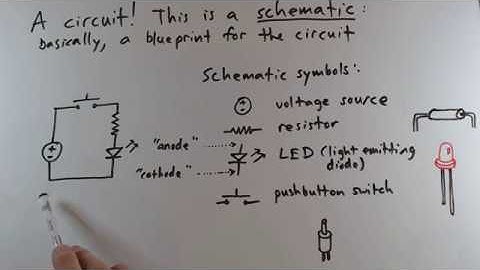 A circuit! This is a schematic:
basically, a blueprint for the circuit
Schematic symbols:
voltage source
resistor
"anode"
LED (light emitting
diode)
"cathode"
pushbutton switch